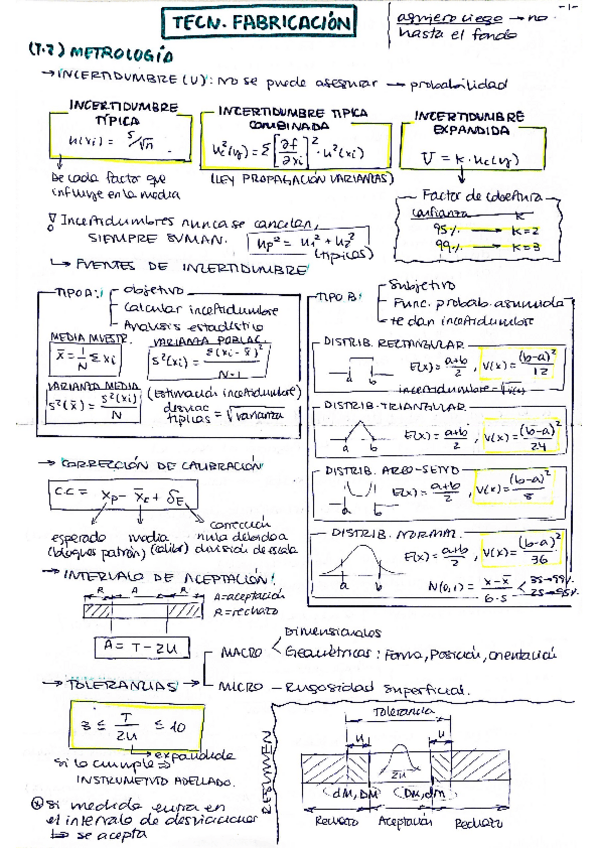 TECN. FABRICACIÓN
agujero ciego → no
hasta el fondo
-1-
(T.2) METROLOGÍA
→ INCERTIDUMBRE (U): no se puede asegurar → probabilidad
INCERTIDUMBRE TÍPICA
u(xi) = s/√n
De cada factor que
influye en la media
INCERTIDUMBRE TÍPICA COMBINADA
u²c(y) = Σ[∂f/∂xi]² · u²(xi)
(LEY PROPAGACIÓN VARIANZAS)
INCERTIDUMBRE EXPANDIDA
U = K · uc(y)
Factor de cobertura
confianza K
95% → K=2
99% → K=3
! Incertidumbres nunca se cancelan,
SIEMPRE SUMAN. up² = u1² + u2²
(típicas)
↳ FUENTES DE INCERTIDUMBRE
TIPO A:
Objetivo
Calcular incertidumbre
Análisis estadístico
MEDIA MUESTR.
x̄ = 1/N Σ xi
VARIANZA POBLAC.
s²(xi) = Σ(xi - x̄)²/N-1
VARIANZA MEDIA
s²(x̄) = s²(xi)/N
(Estimación incertidumbre)
desviac típicas = √varianza
TIPO B:
Subjetivo
Func. probab. asumida
te dan incertidumbre
DISTRIB. RECTANGULAR
a b
E(x) = a+b/2, V(x) = (b-a)²/12
incertidumbre = √V(x)
DISTRIB. TRIANGULAR
a b
E(x) = a+b/2, V(x) = (b-a)²/24
DISTRIB. ARCO-SENO
a b
E(x) = a+b/2, V(x) = (b-a)²/8
DISTRIB. NORMAL
a b
E(x) = a+b/2, V(x) = (b-a)²/36
N(0,1) = x-x̄/6·s
3s→99%
2s→95%
→ CORRECCIÓN DE CALIBRACIÓN
C.C = xp - x̄c + δE
esperado
(bloques patrón)
media
(calibr)
corrección
nula debido a
división de escala
→ INTERVALO DE ACEPTACIÓN:
R A R
A=aceptación
R=rechazo
A = T - 2U
→ TOLERANCIAS →
MACRO
Dimensionales
Geométricas: Forma, Posición, orientación
MICRO - Rugosidad superficial.
3 ≤ T/2U ≤ 10
expandida
si lo cumple ⇒
INSTRUMENTO ADECUADO.
* si medida entra en
el intervalo de desviaciones
↳ se acepta
RESUMEN
Tolerancia
u u
2U
(dM, DM) (Dm, dm)
Rechazo Aceptación Rechazo